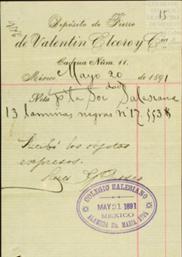 15
Depósito de Fierro
de Valentin Elcoro y Cia
Cadena Núm. 11.
México Mayo 20 de 1891
Nota pa la Soc Salesiana
13 laminas negras No 17, 553 K
Recibí los objetos
expresos.
COLEGIO SALESIANO
MAY 21 1891
MEXICO
ALAMEDA STA. MARIA